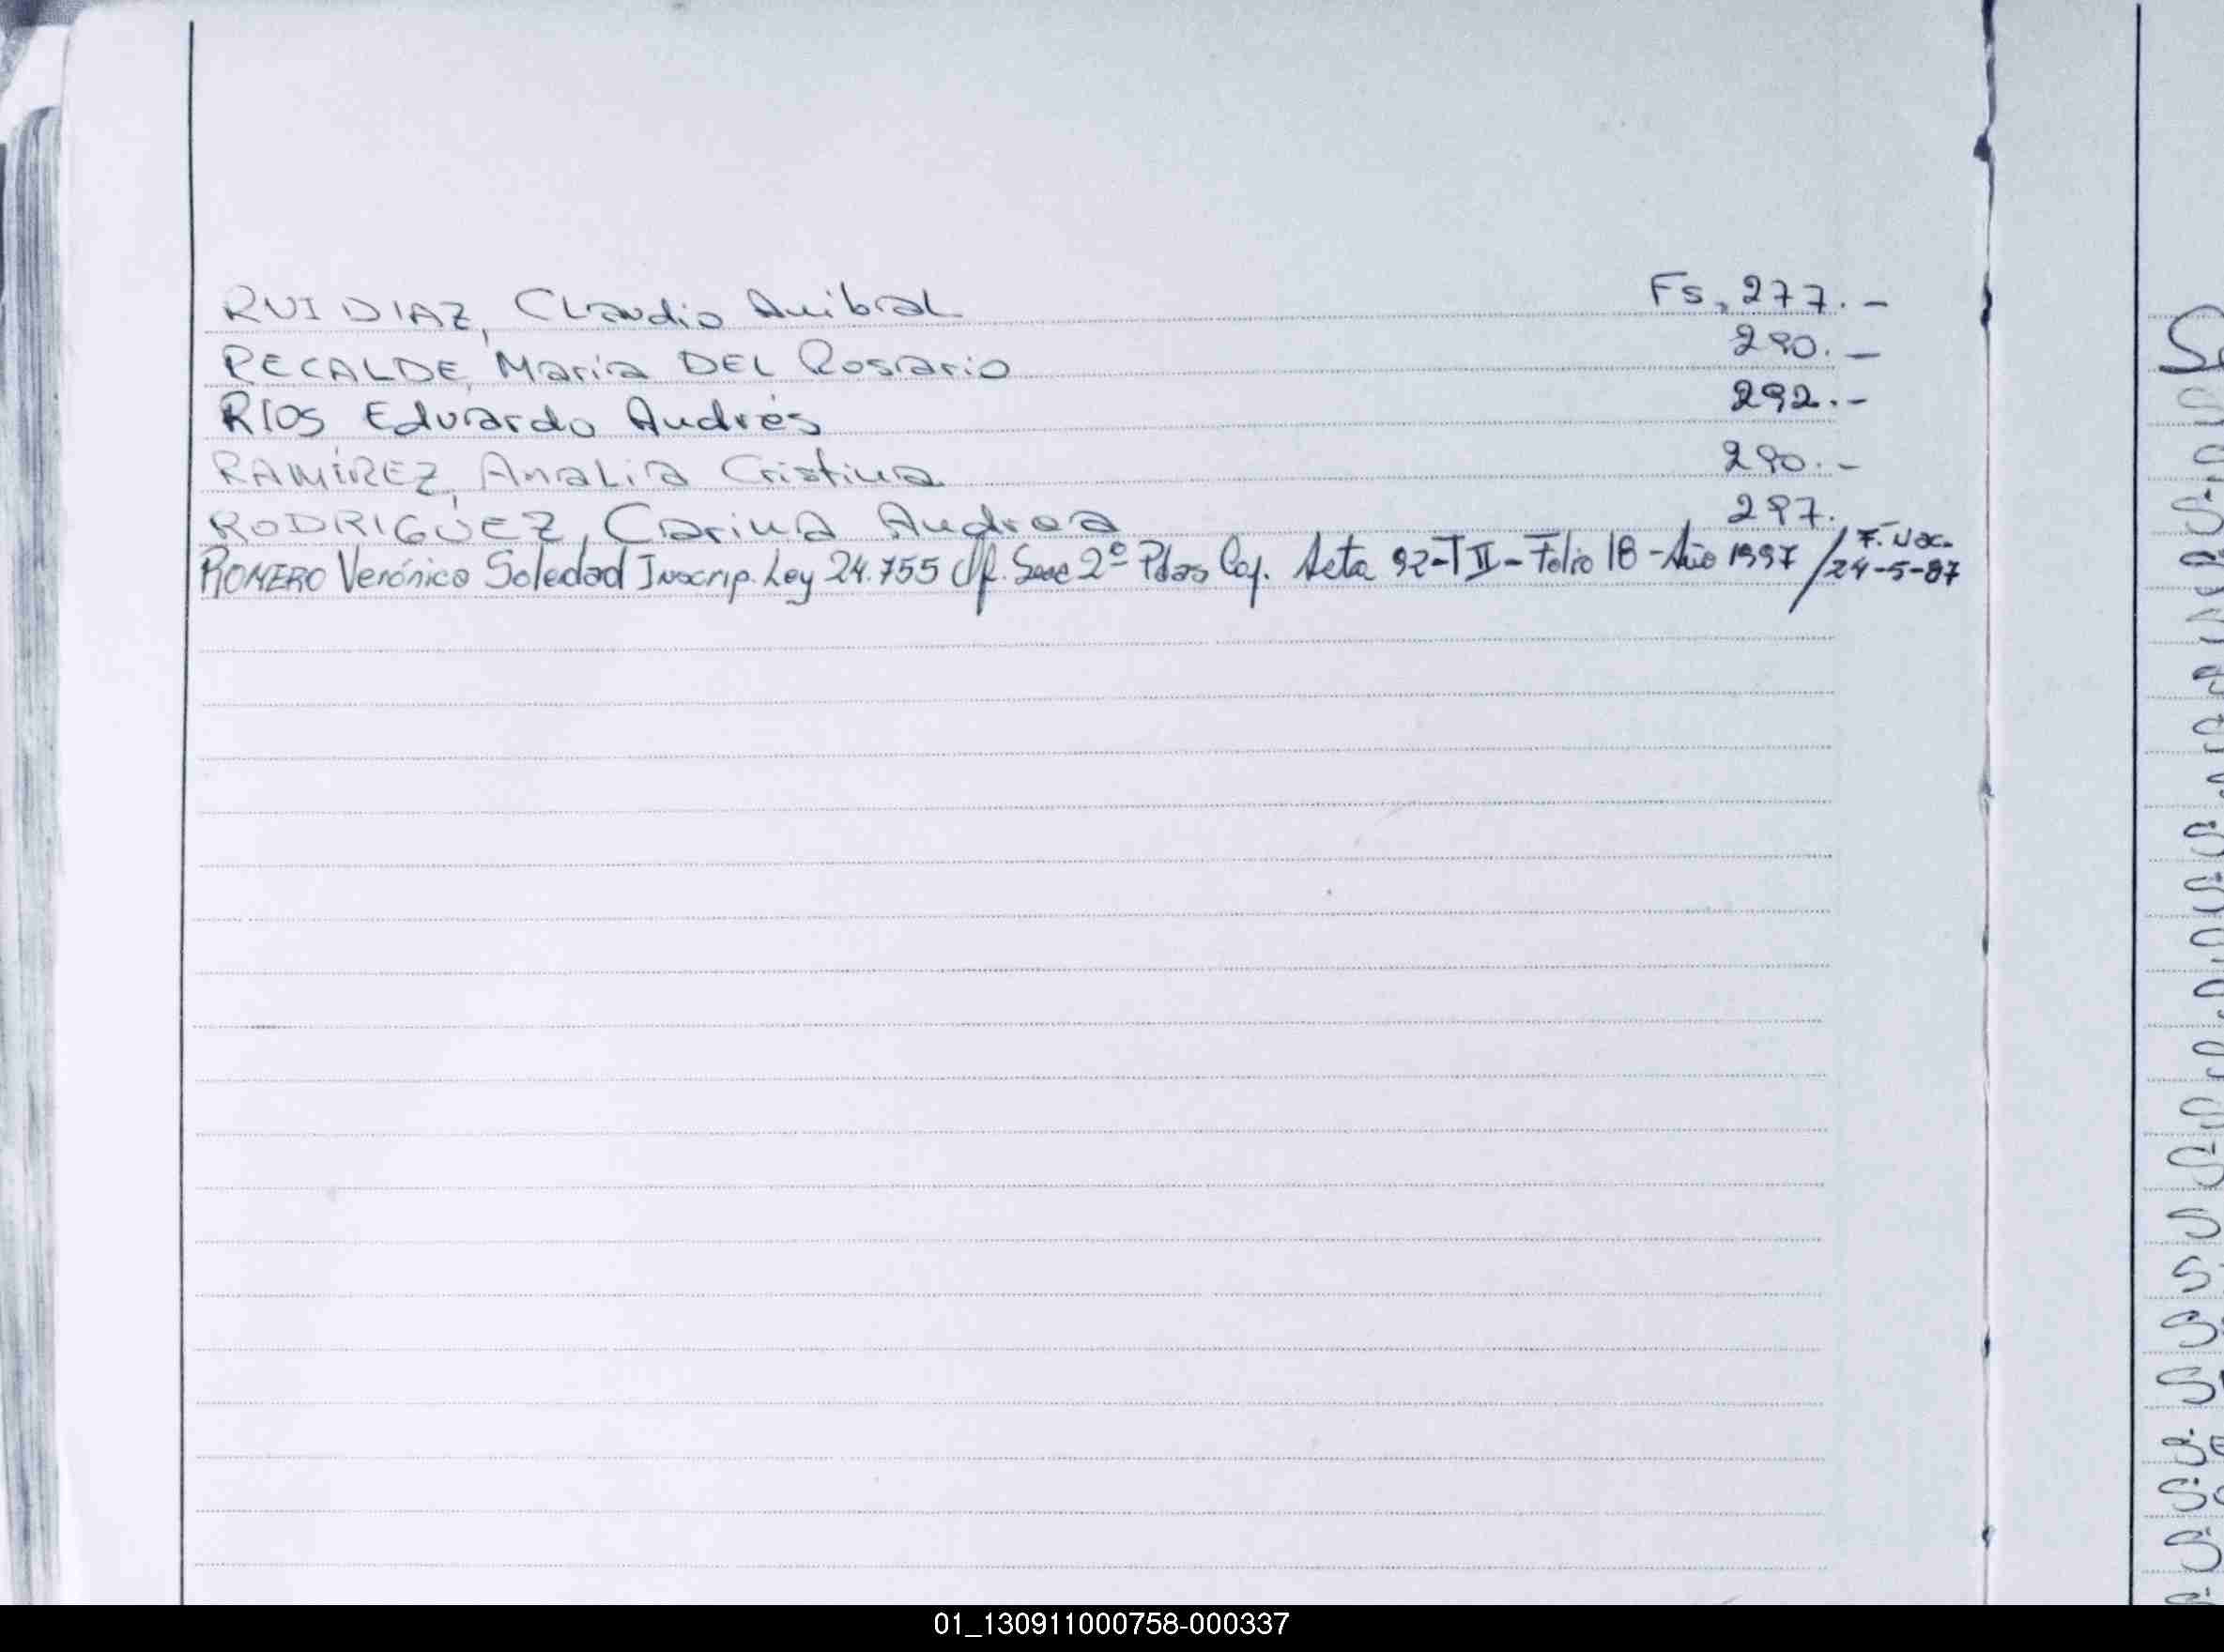 RUIDIAZ, Claudio Anibal Fs, 277.-
RECALDE, María DEL Rosario 290.-
RÍOS Eduardo Andrés 292.-
RAMÍREZ, Analia Cristina 290.-
RODRIGUEZ, Carina Andrea 297.
ROMERO Verónica Soledad Inscrip. Ley 24.755 Of. Secc 2º Pdas Cap. Acta 92-T II-Folio 18-Año 1997 / F. Nac. 24-5-87
01_130911000758-000337